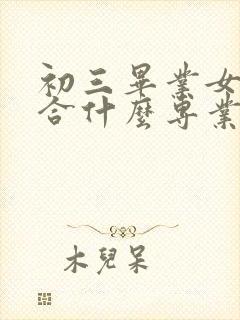 初三畢業女
合什麼專業
木兒呆